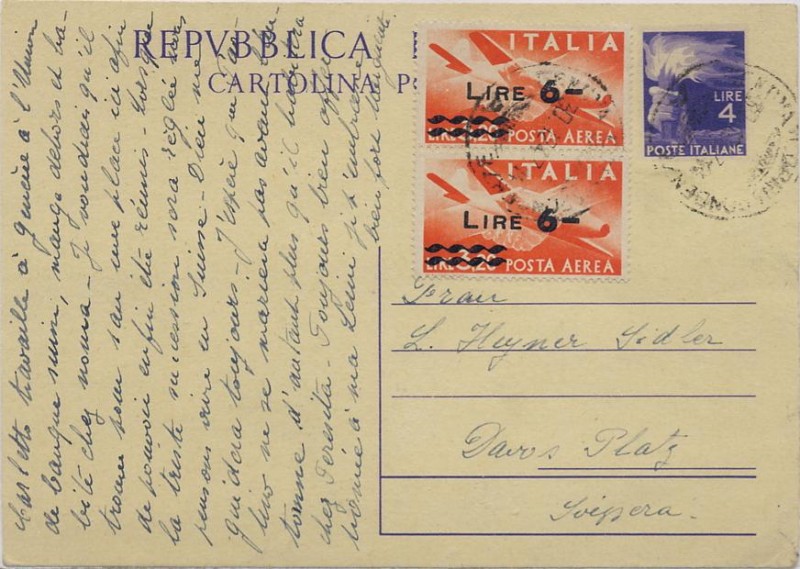 REPVBBLICA
CARTOLINA P
ITALIA
LIRE 6-
LIRE 3,20 POSTA AEREA
ITALIA
LIRE 6-
LIRE 3,20 POSTA AEREA
LIRE
4
POSTE ITALIANE
GENOVA
Frau
L. Heyner Sidler
Davos Platz
Svizzera.
Carletto travaille à Genève à l'Union
de banque suisse, mange dehors et ha-
bite chez nonna - Je voudrais qu'il
trouve pour sau une place ici afin
de pouvoir enfin être réunis - Lorsque
la triste succession sera réglée nous
pensons vivre en Suisse - Dieu me
guidera toujours - J'espère que
ne se mariera pas avant
tomne d'autant plus qu'il
chez Teresita - Toujours bien
tionnée à ma Leini je t'embrasse
bien fort